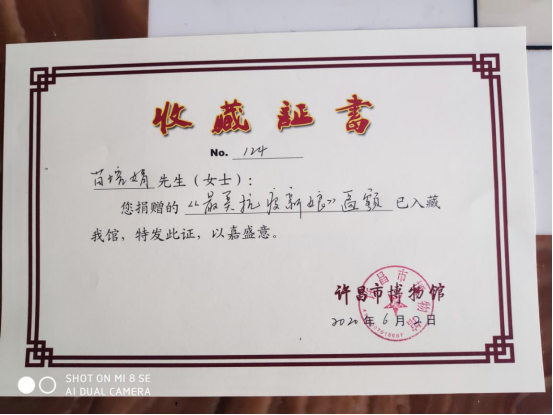 收藏証書
No. 124
苗培娟 先生（女士）：
您捐赠的《最美抗疫新娘》匾额 已入藏
我馆，特发此证，以嘉盛意。
许昌市博物馆
2020年6月2日
许昌市博物馆
SHOT ON MI 8 SE
AI DUAL CAMERA